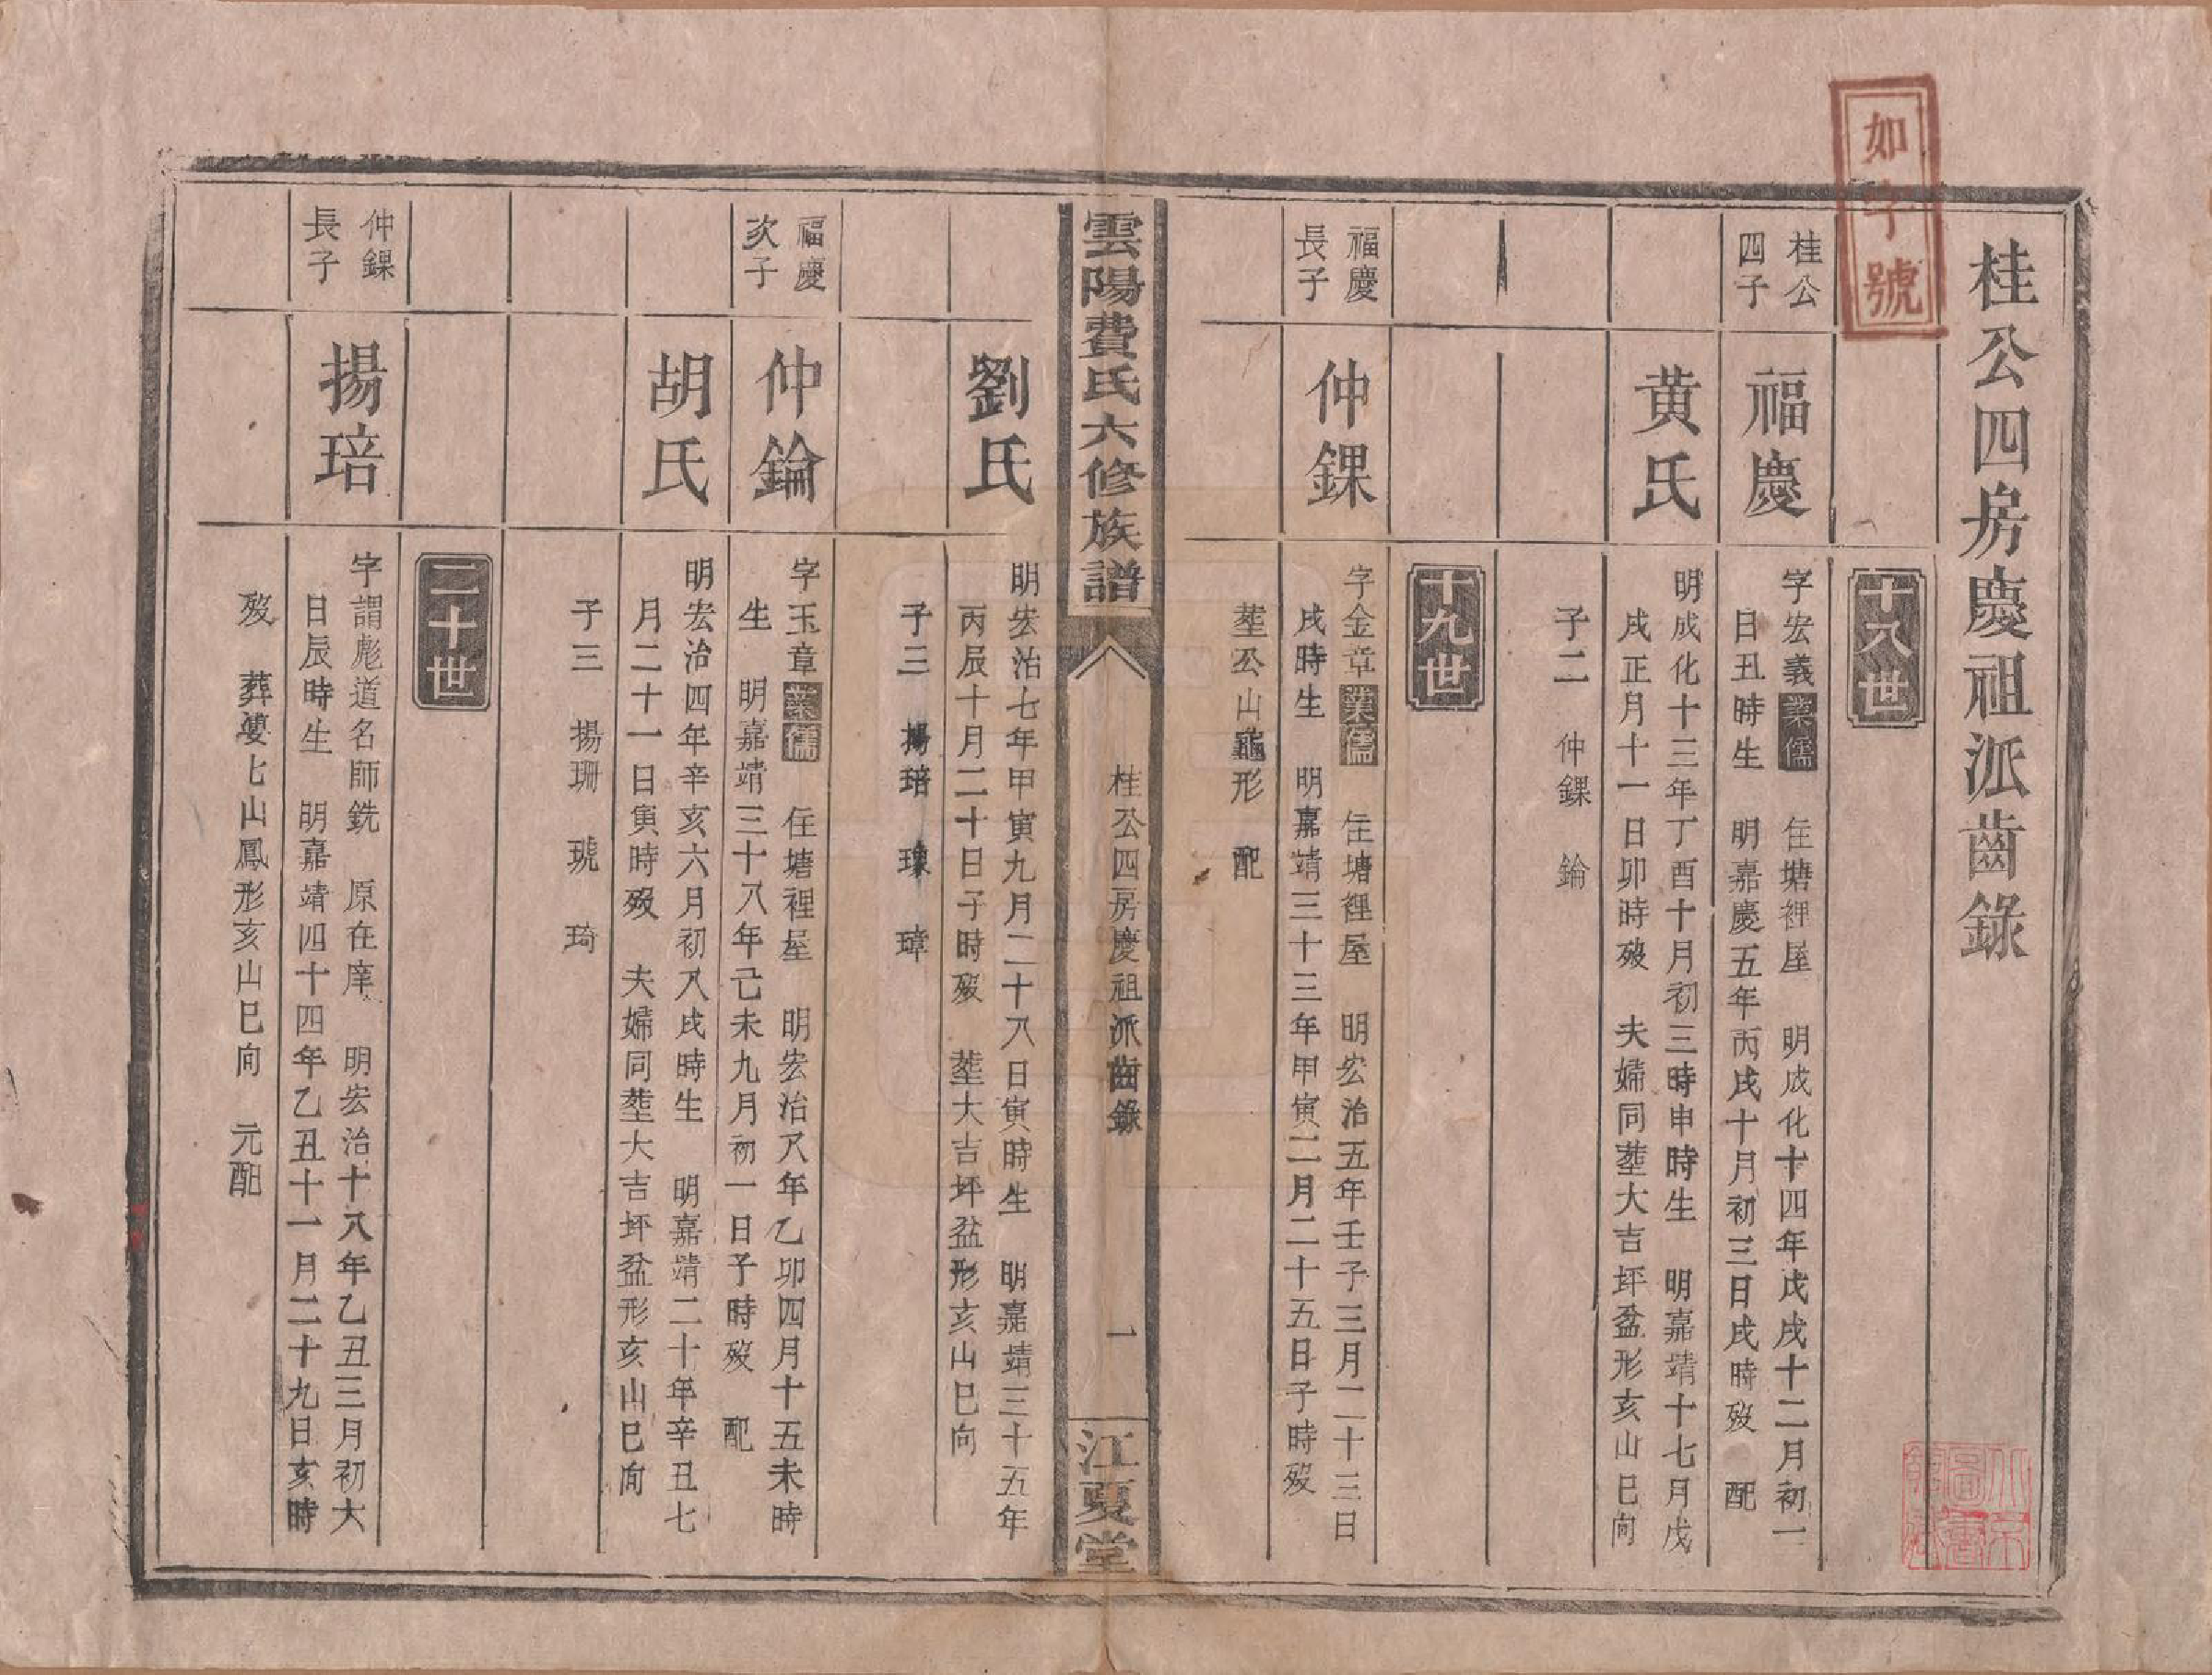 如字號
桂公四房慶祖派齒錄
十八世
桂公
四子
福慶
字宏義業儒 住塘裡屋 明成化十四年戊戌十二月初一
日丑時生 明嘉慶五年丙戌十月初三日戌時歿 配
黄氏
明成化十三年丁酉十月初三時申時生 明嘉靖十七月戊
戌正月十一日卯時歿 夫婦同塟大吉坪盆形亥山巳向
子二 仲錁 錀
十九世
福慶
長子
仲錁
字金章業儒 住塘裡屋 明宏治五年壬子三月二十三日
戌時生 明嘉靖三十三年甲寅二月二十五日子時歿
塟公山龜形 配
雲陽費氏六修族譜
桂公四房慶祖派齒錄
一
江夏堂
劉氏
明宏治七年甲寅九月二十八日寅時生 明嘉靖三十五年
丙辰十月二十日子時歿 塟大吉坪盆形亥山巳向
子三 揚琣 瑔 瑋
福慶
次子
仲錀
字玉章業儒 住塘裡屋 明宏治八年乙卯四月十五未時
生 明嘉靖三十八年己未九月初一日子時歿 配
胡氏
明宏治四年辛亥六月初八戌時生 明嘉靖二十年辛丑七
月二十一日寅時歿 夫婦同塟大吉坪盆形亥山巳向
子三 揚珊 琥 琦
二十世
仲錁
長子
揚琣
字謂彪道名師銑 原在庠 明宏治十八年乙丑三月初大
日辰時生 明嘉靖四十四年乙丑十一月二十九日亥時
歿 葬婆七山鳳形亥山巳向 元配